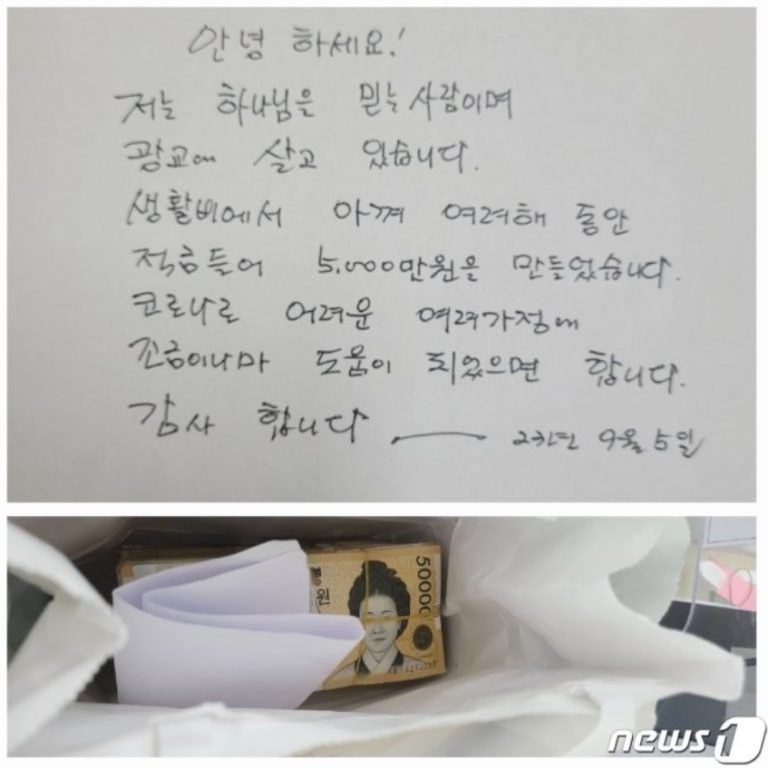 안녕 하세요!
저는 하나님을 믿는 사람이며
광교에 살고 있습니다.
생활비에서 아껴 여러해 동안
적금들어 5,000만원을 만들었습니다.
코로나로 어려운 여러가정에
조금이나마 도움이 되었으면 합니다.
감사 합니다
23년 9월 5일
50000
원
news1